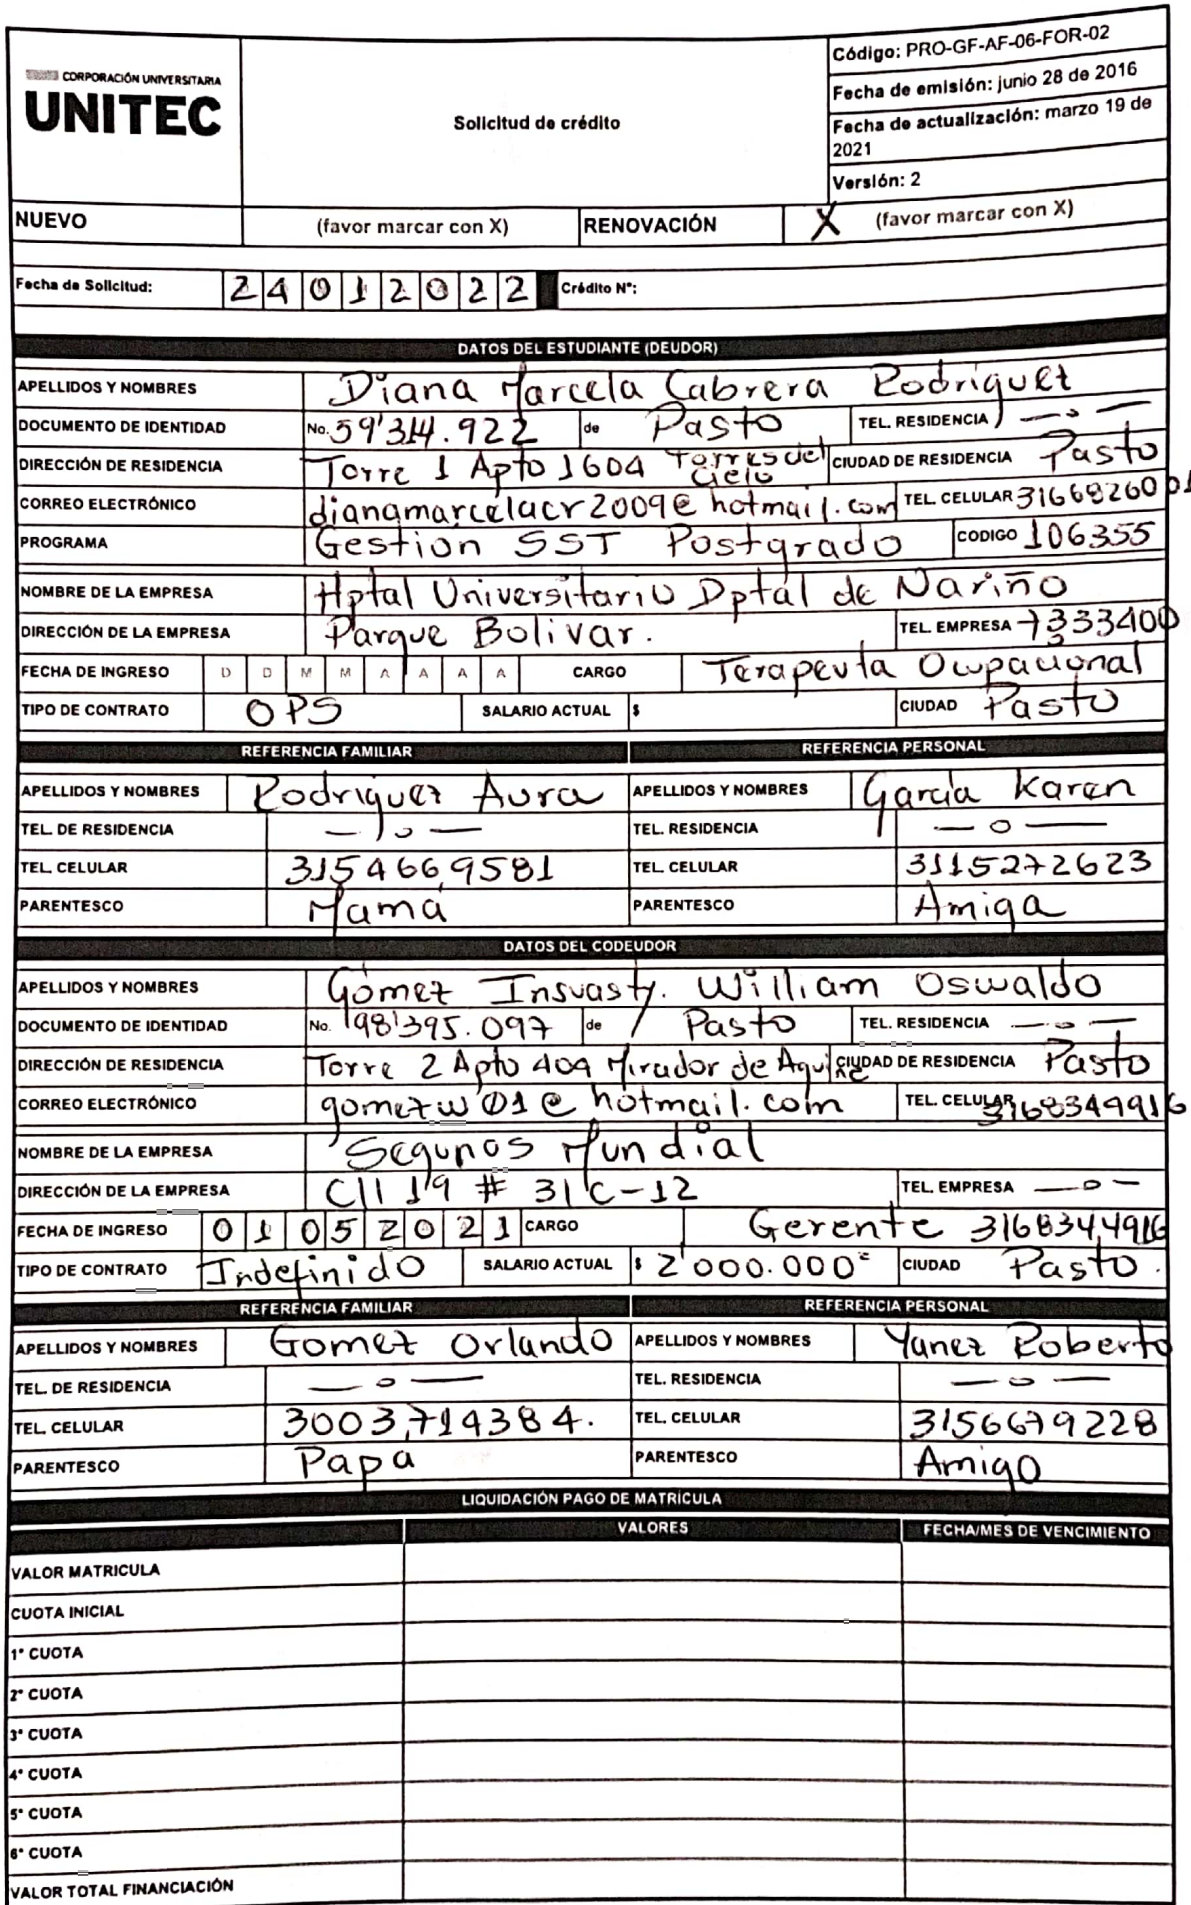 CORPORACIÓN UNIVERSITARIA
UNITEC
Solicitud de crédito
Código: PRO-GF-AF-06-FOR-02
Fecha de emisión: junio 28 de 2016
Fecha de actualización: marzo 19 de
2021
Versión: 2
NUEVO (favor marcar con X) RENOVACIÓN X (favor marcar con X)
Fecha de Solicitud: 2 4 0 1 2 0 2 2 Crédito N°:
DATOS DEL ESTUDIANTE (DEUDOR)
APELLIDOS Y NOMBRES Diana Marcela Cabrera Rodriguez
DOCUMENTO DE IDENTIDAD No. 59'314.922 de Pasto TEL. RESIDENCIA —o—
DIRECCIÓN DE RESIDENCIA Torre 1 Apto 1604 Torres del Cielo CIUDAD DE RESIDENCIA Pasto
CORREO ELECTRÓNICO dianamarcelacr2009@hotmail.com TEL. CELULAR 3166826001
PROGRAMA Gestion SST Postgrado CODIGO 106355
NOMBRE DE LA EMPRESA Hptal Universitario Dptal de Nariño
DIRECCIÓN DE LA EMPRESA Parque Bolivar. TEL. EMPRESA 7333400
FECHA DE INGRESO D D M M A A A A CARGO Terapeuta Ocupacional
TIPO DE CONTRATO OPS SALARIO ACTUAL $ CIUDAD Pasto
REFERENCIA FAMILIAR REFERENCIA PERSONAL
APELLIDOS Y NOMBRES Rodriguez Aura APELLIDOS Y NOMBRES Garcia Karen
TEL. DE RESIDENCIA —o— TEL. RESIDENCIA —o—
TEL. CELULAR 3154669581 TEL. CELULAR 3115272623
PARENTESCO Mamá PARENTESCO Amiga
DATOS DEL CODEUDOR
APELLIDOS Y NOMBRES Gómez Insuasty. William Oswaldo
DOCUMENTO DE IDENTIDAD No. 98'395.097 de Pasto TEL. RESIDENCIA —o—
DIRECCIÓN DE RESIDENCIA Torre 2 Apto 404 Mirador de Aquine CIUDAD DE RESIDENCIA Pasto
CORREO ELECTRÓNICO gomezw01@hotmail.com TEL. CELULAR 3168344916
NOMBRE DE LA EMPRESA Seguros Mundial
DIRECCIÓN DE LA EMPRESA Cll 19 # 31C-12 TEL. EMPRESA —o—
FECHA DE INGRESO 0 1 0 5 2 0 2 1 CARGO Gerente 3168344916
TIPO DE CONTRATO Indefinido SALARIO ACTUAL $ 2'000.000= CIUDAD Pasto.
REFERENCIA FAMILIAR REFERENCIA PERSONAL
APELLIDOS Y NOMBRES Gomez Orlando APELLIDOS Y NOMBRES Yanez Roberto
TEL. DE RESIDENCIA —o— TEL. RESIDENCIA —o—
TEL. CELULAR 3003714384. TEL. CELULAR 3156679228
PARENTESCO Papa PARENTESCO Amigo
LIQUIDACIÓN PAGO DE MATRÍCULA
VALORES FECHA/MES DE VENCIMIENTO
VALOR MATRICULA
CUOTA INICIAL
1° CUOTA
2° CUOTA
3° CUOTA
4° CUOTA
5° CUOTA
6° CUOTA
VALOR TOTAL FINANCIACIÓN